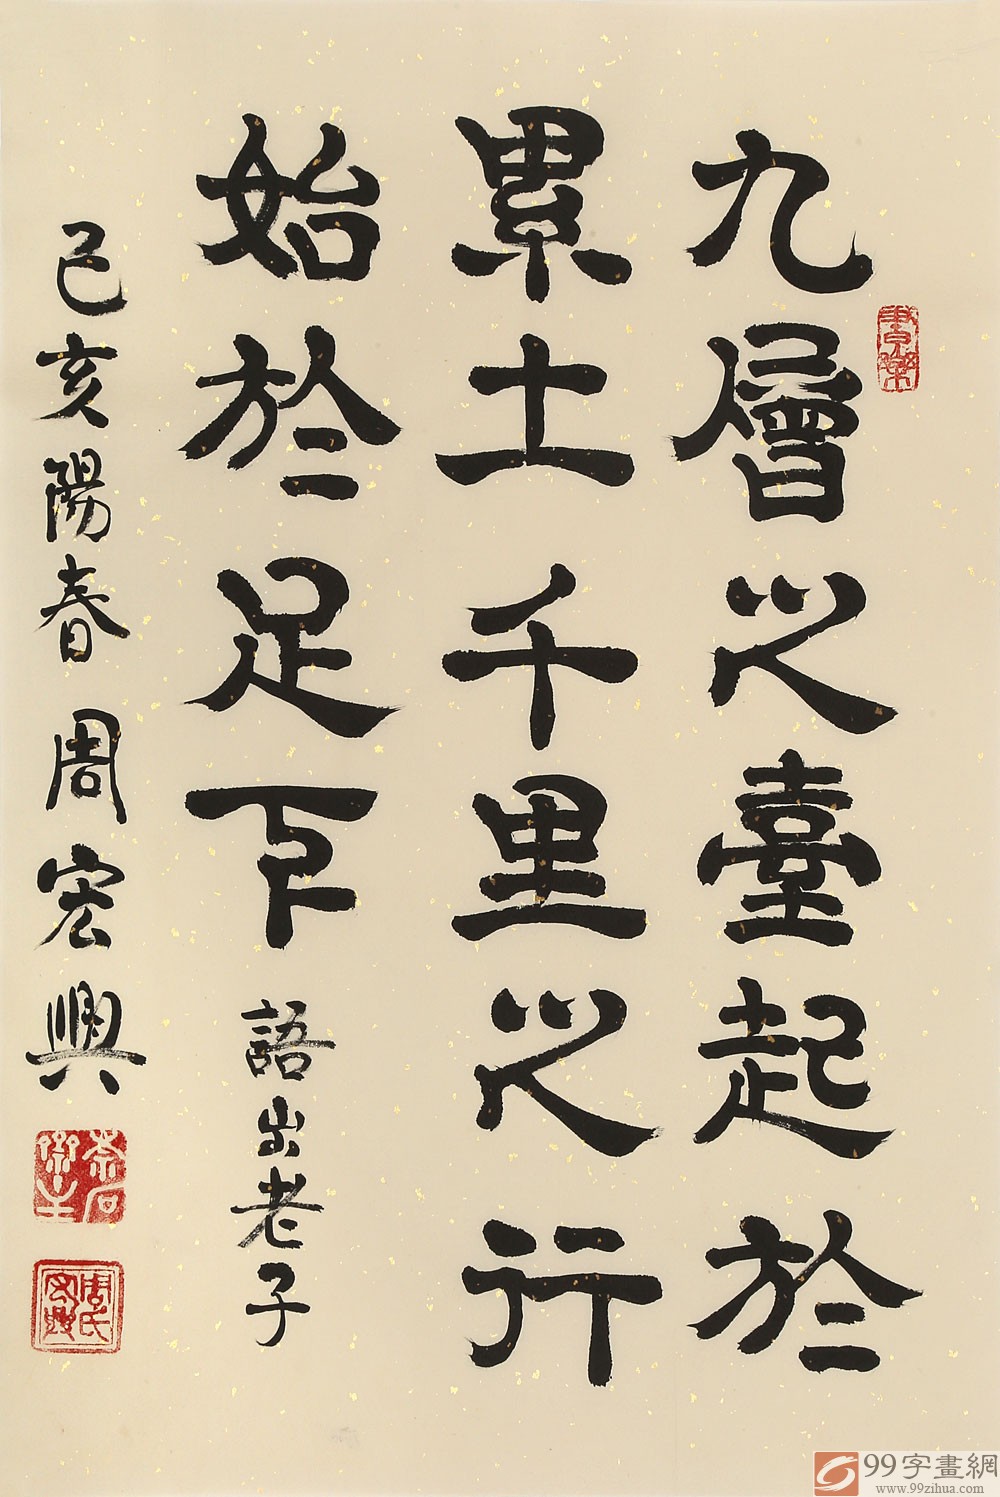 九層之臺起於
累土千里之行
始於足下
語出老子
己亥陽春周宏興
周氏宏興
99字畫網
www.99zihua.com